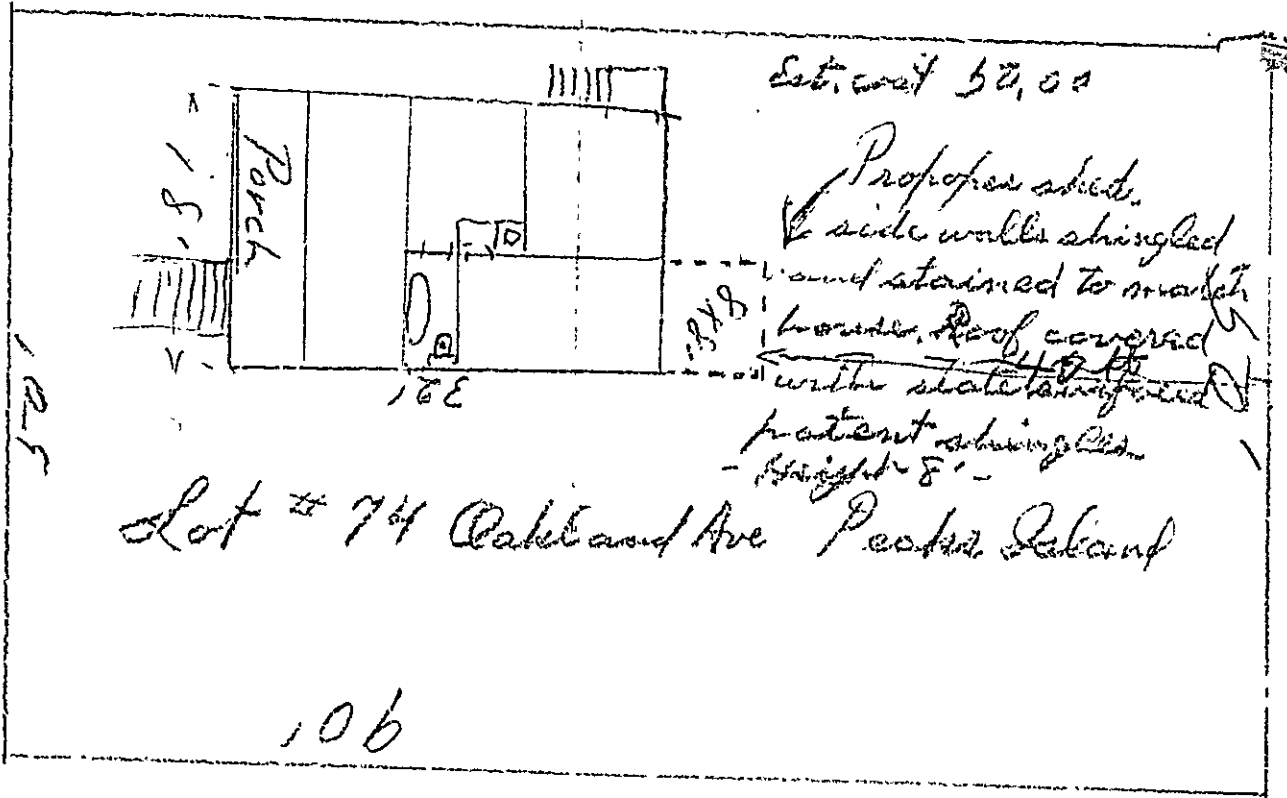 Est. cost 50,00
Proposed shed.
side walls shingled
and stained to match
house. Roof covered
with slate surfaced
patent shingles
- Height 8' -
Porch
18'
8x8'
40 ft
32'
50'
50'
Lot # 74 Oakland Ave Peaks Island
90'